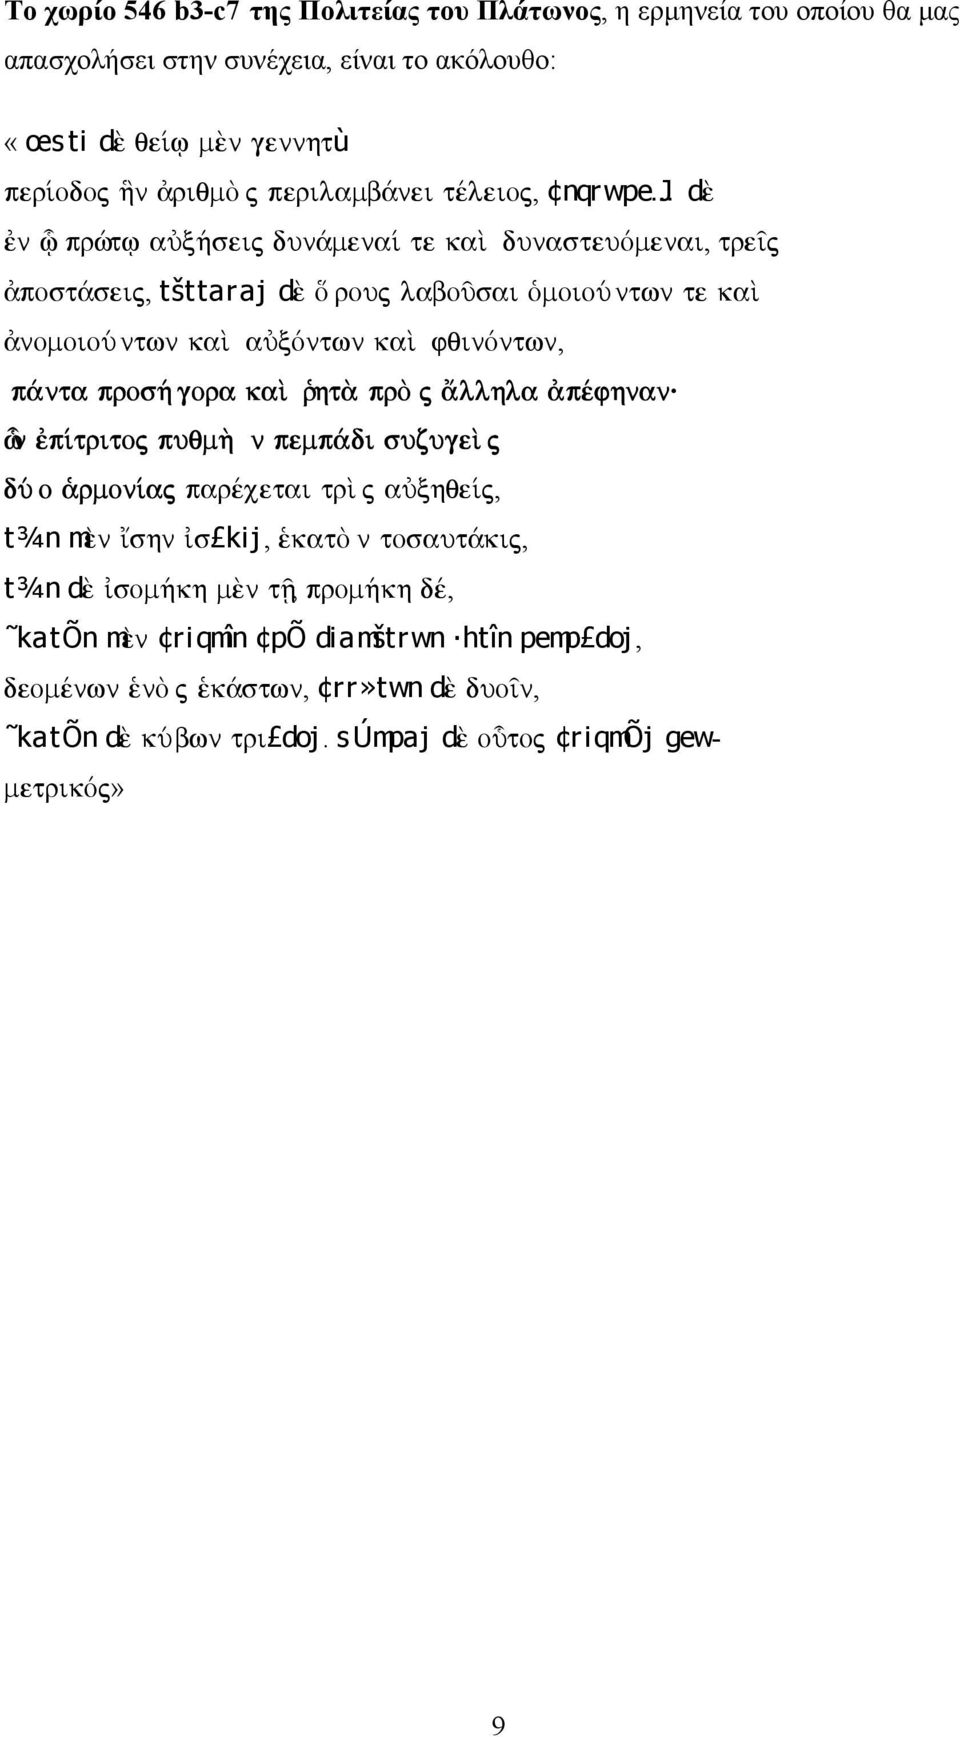 Το χωρίο 546 b3-c7 της Πολιτείας του Πλάτωνος, η ερμηνεία του οποίου θα μας
απασχολήσει στην συνέχεια, είναι το ακόλουθο:
«œsti dὲ θείῳ μὲν γεννητù
περίοδος ἣν ἀριθμὸς περιλαμβάνει τέλειος, ¢nqrwpe…J dὲ
ἐν ᾧ πρώτῳ αὐξήσεις δυνάμεναί τε καὶ δυναστευόμεναι, τρεῖς
ἀποστάσεις, tšttaraj dὲ ὅρους λαβοῦσαι ὁμοιούντων τε καὶ
ἀνομοιούντων καὶ αὐξόντων καὶ φθινόντων,
πάντα προσήγορα καὶ ῥητὰ πρὸς ἄλληλα ἀπέφηναν·
ὧν ἐπίτριτος πυθμὴν πεμπάδι συζυγεὶς
δύο ἁρμονίας παρέχεται τρὶς αὐξηθείς,
t¾n mὲν ἴσην ἰσ£kij, ἑκατὸν τοσαυτάκις,
t¾n dὲ ἰσομήκη μὲν τῇ, προμήκη δέ,
˜katÕn mὲν ¢riqmîn ¢pÕ diamštrwn ·htîn pemp£doj,
δεομένων ἑνὸς ἑκάστων, ¢rr»twn dὲ δυοῖν,
˜katÕn dὲ κύβων τρι£doj. sÚmpaj dὲ οὗτος ¢riqmÕj gew-
μετρικός»
9